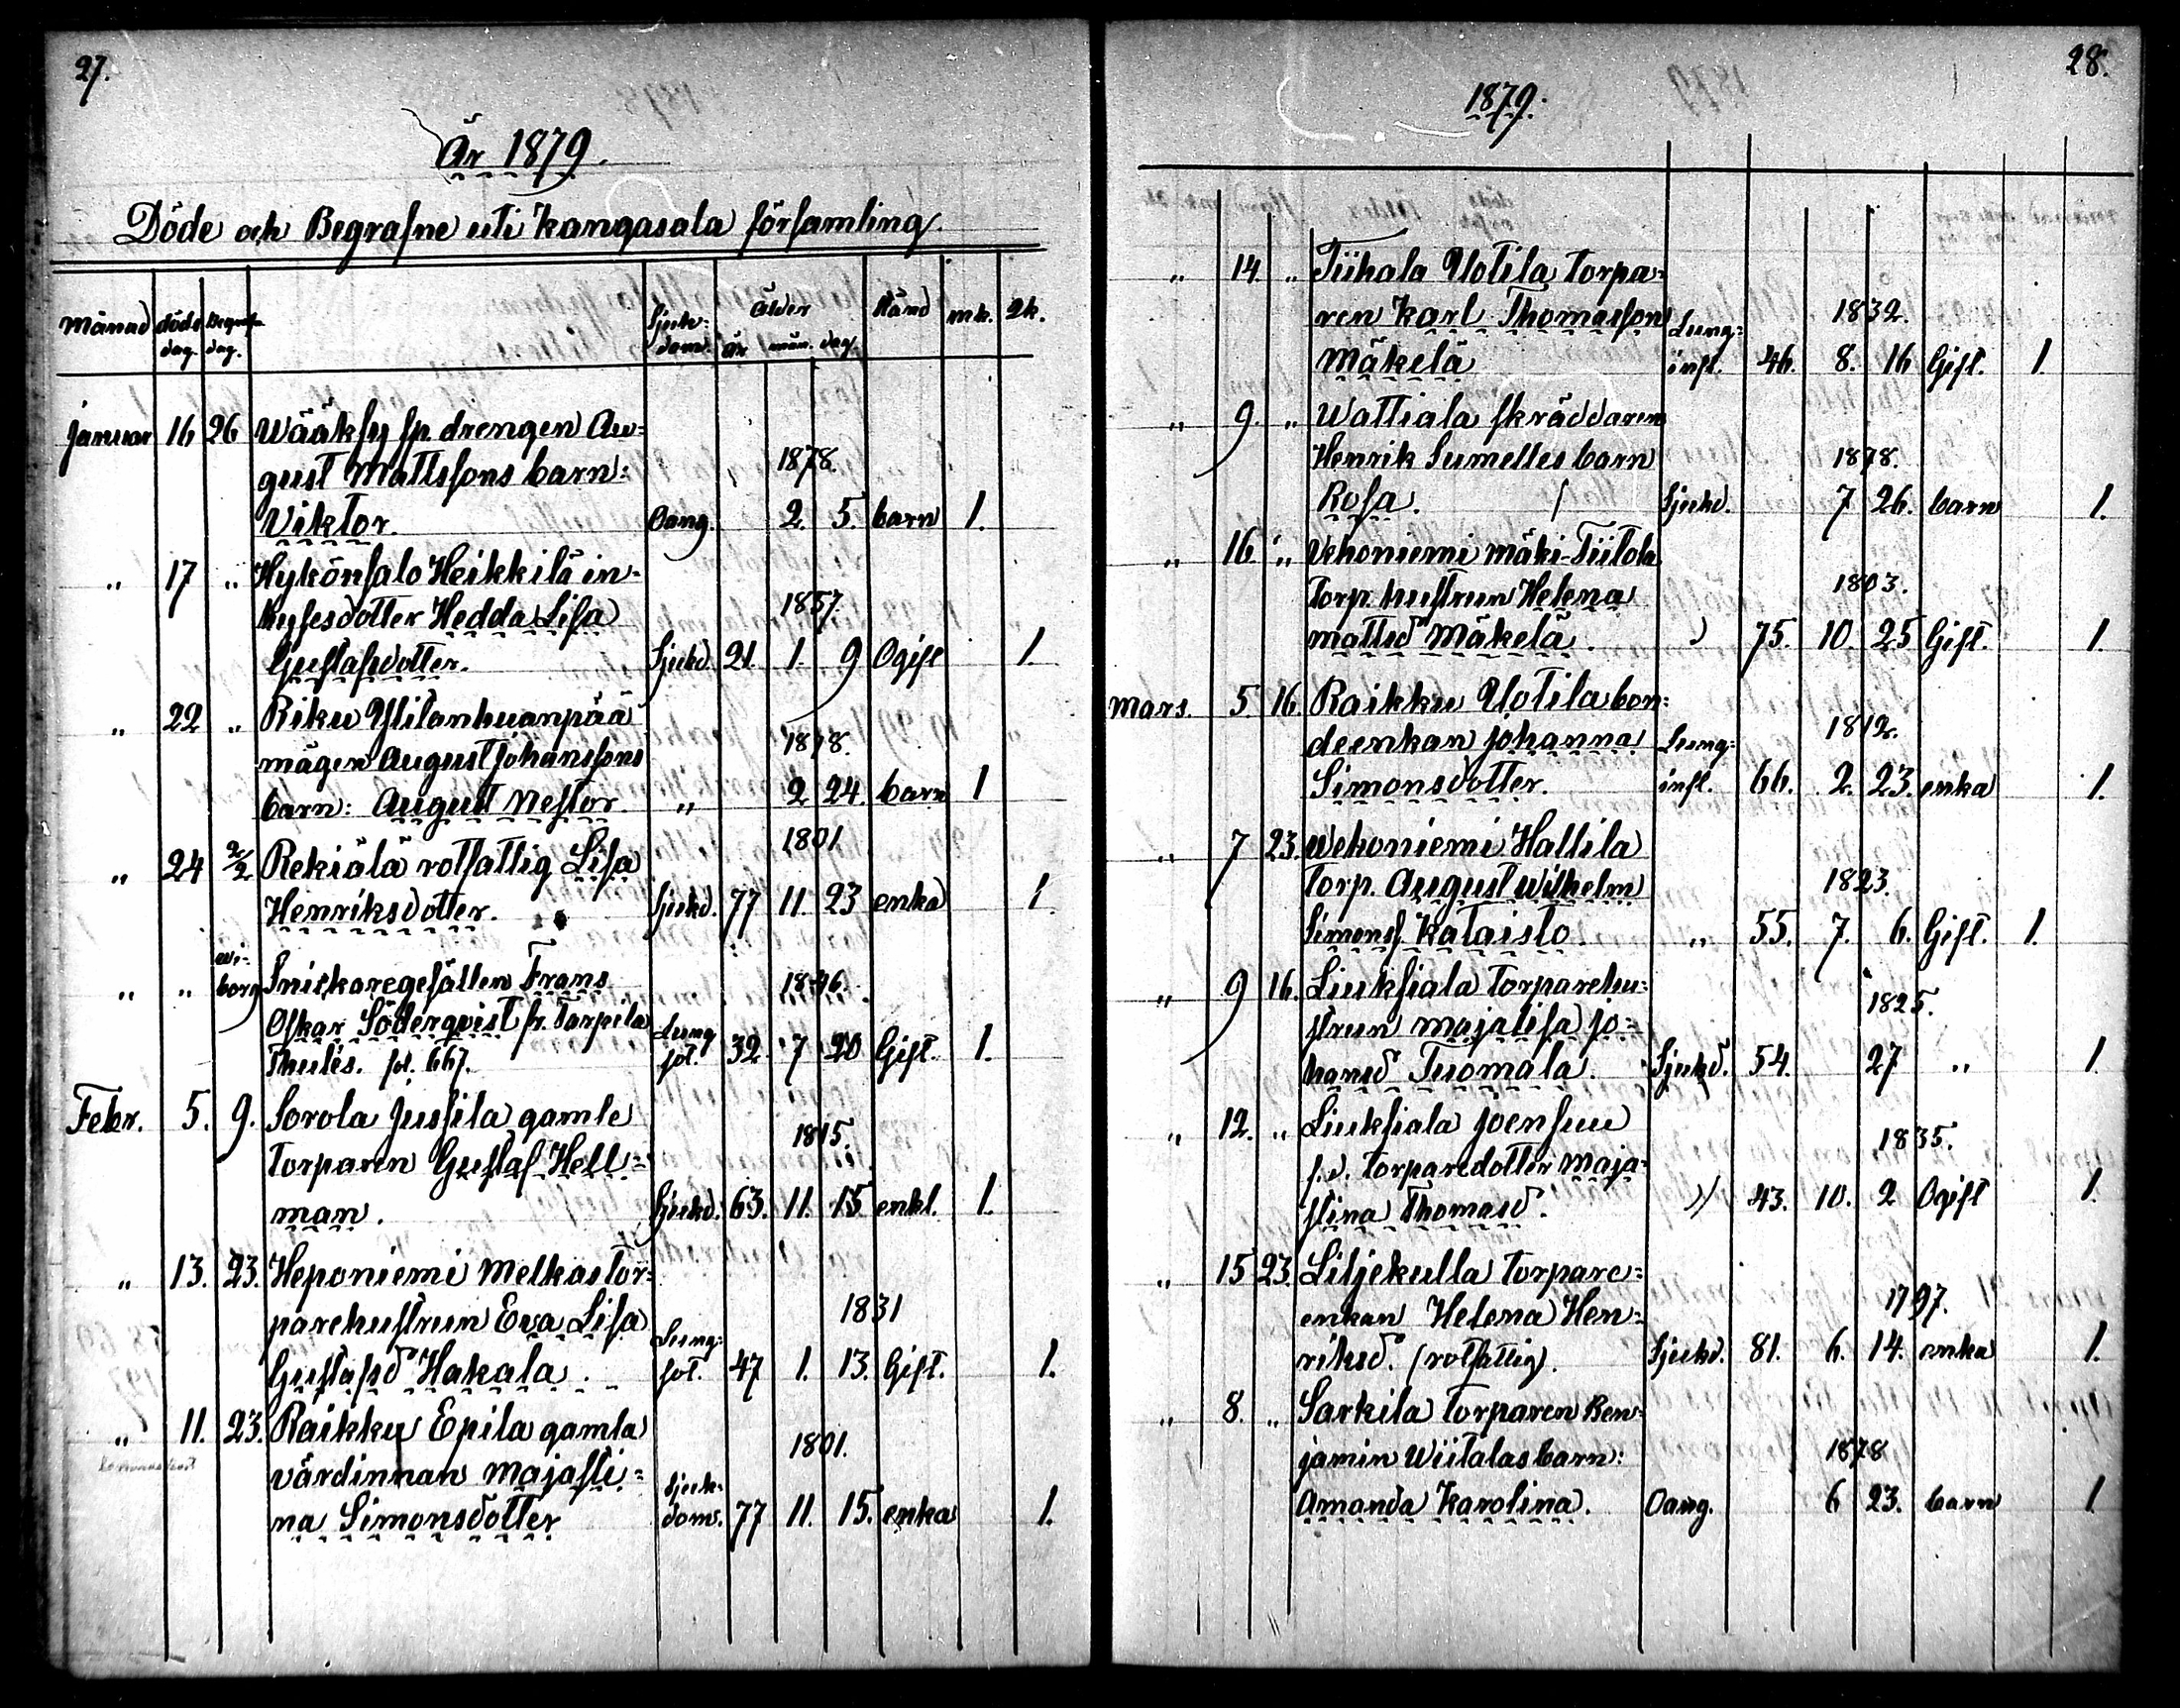 27.
År 1879.
Döde och Begrafne uti Kangasala församling.
Månad döds dag. Begrafn. dag. Sjuk-dom. Ålder år mån. dag. Stånd mk. qk.
Januar 16 26 Wääksy sp. drengen Au-
gust Mattssons barn: 1878.
Viktor. Oang. 2. 5. barn 1.
" 17 " Hykönsalo Heikkilä in-
hysesdotter Hedda Lisa 1857.
Gustafsdotter. Sjukd. 21. 1. 9 Ogift 1.
" 22 " Riku Yllilanhuanpää
mågen August Johanssons 1878.
barn: August Nestor " 2 24. barn 1
" 24 2/2 Rekiälä rotfattig Lisa 1801
Henriksdotter. Sjukd. 77 11. 23 enka 1.
" " Wi-borg Snickaregesällen Frans 1846.
Oskar Söderqvist fr. Tarpila
Thules. fol. 667. Lung sot. 32 7 20 Gift. 1.
Febr. 5. 9. Sorola Jussila gamle
Torparen Gustaf Hell- 1815.
man. Sjukd. 63. 11. 15 enkl. 1.
" 13. 23. Heponiemi Melkas tor-
parehustrun Eva Lisa 1831
Gustafsd Hakala. Lung-sot. 47 1. 13. Gift. 1.
" 11. 23. Raikku Epila gamla
värdinnan Majasti- 1801.
na Simonsdotter Sjuk-dom. 77 11. 15. enka 1.
28.
1879.
" 14. " Tiihala Uotila torpa-
ren Karl Thomasson 1832.
Mäkelä Lung-infl. 46. 8. 16 Gift. 1.
" 9. " Wattiala skräddaren
Henrik Sumelles barn 1878.
Rosa. Sjukd. 7 26. barn 1.
" 16. " Vehoniemi mäki-Tiitola
torp. hustrun Helena 1803.
Mattsd Mäkelä. " 75. 10. 25 Gift. 1.
Mars. 5. 16. Raikku Uotila bon-
deenkan Johanna 1812.
Simonsdotter. Lung-infl. 66. 2. 23. enka 1.
" 7 23. Wehoniemi Hallila
torp. August Wilhelm 1823.
Simonss. Kataisto. " 55. 7. 6. Gift. 1.
" 9 16. Liuksiala torparehu-
strun Majalisa Jo- 1825.
hansd Tuomala. Sjukd. 54. 27 " 1.
" 12. " Liuksiala Joensuu
f.d. torparedotter Maja- 1835.
stina Thomasd. " 43. 10. 2 Ogift 1.
" 15 23. Liljekulla torpare-
enkan Helena Hen- 1797.
riksd. (rotfattig). Sjukd. 81. 6. 14. enka 1.
" 8. " Sarkila torparen Ben-
jamin Wiitalas barn: 1878
Amanda Karolina. Oang. 6 23. barn 1